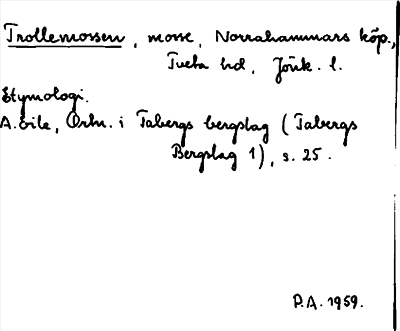 Trollemossen, mosse, Norrahammars köp.,
Tveta hd, Jönk. l.
Etymologi.
A. Eile, Ortn. i Tabergs bergslag (Tabergs
Bergslag 1), s. 25.
P.A. 1959.